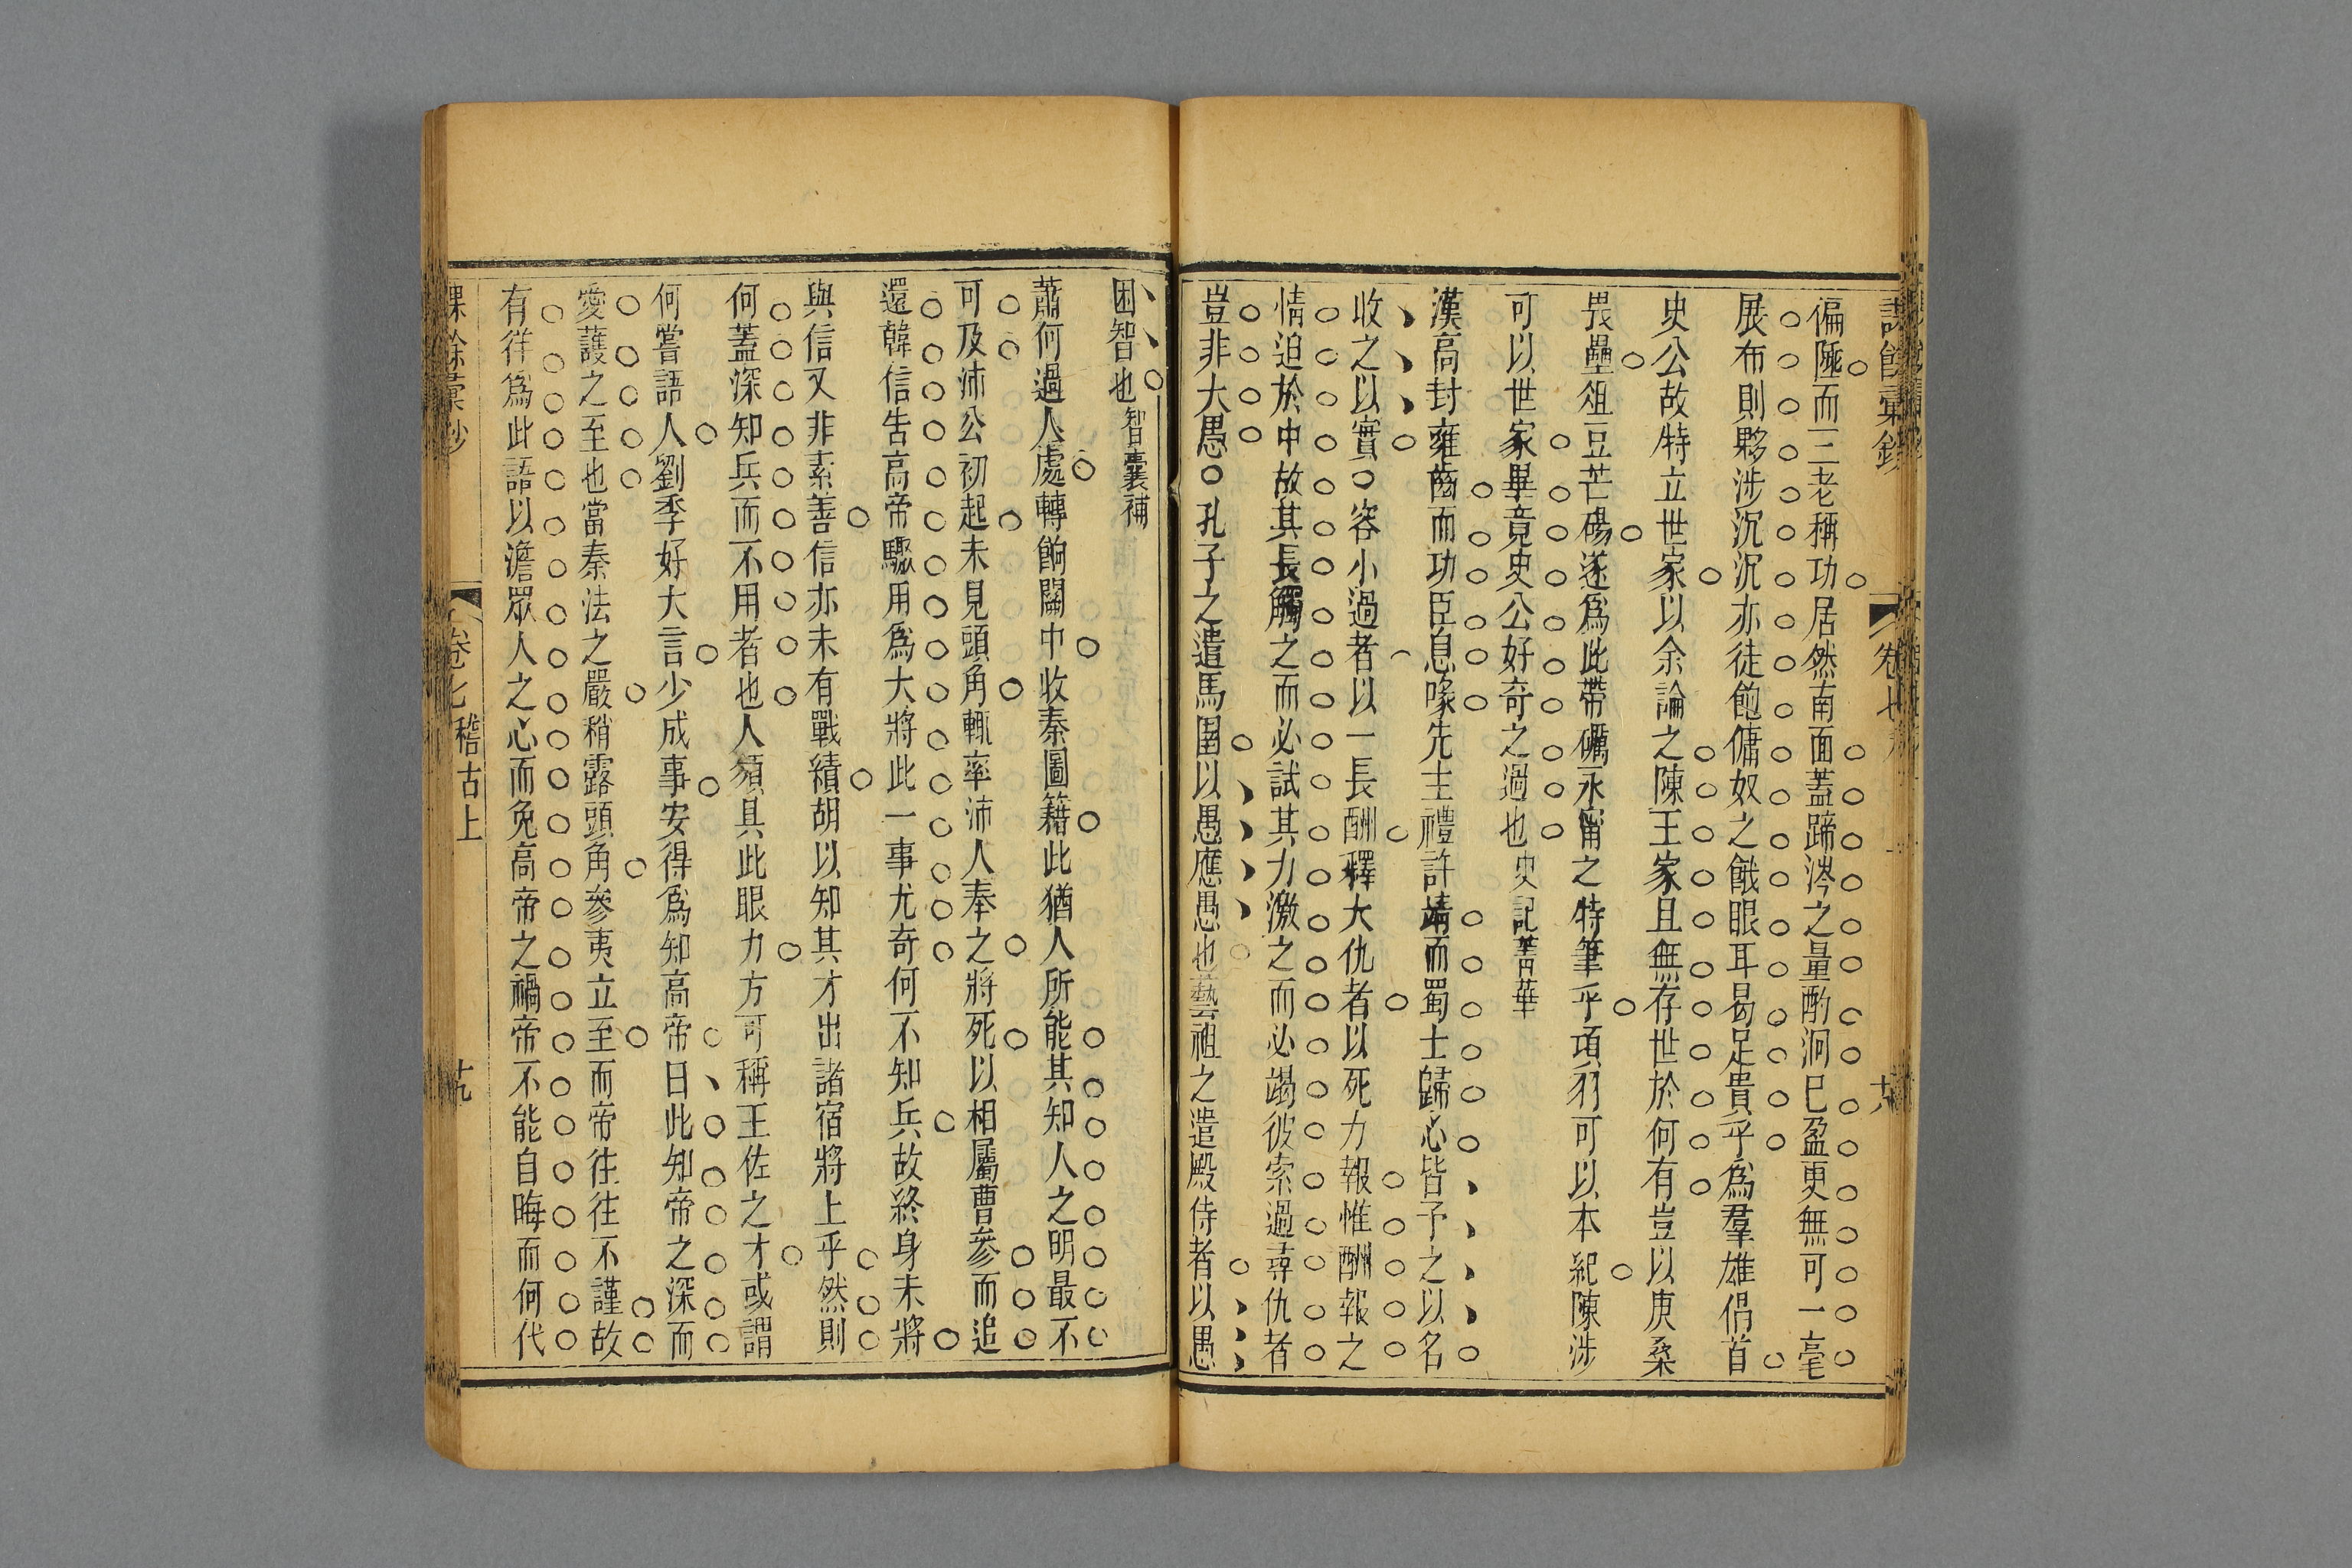 偏陲而三老稱功居然南面蓋蹄涔之量酌泂已盈更無可一毫
展布則夥涉沉沉亦徒飽傭奴之餓眼耳曷足貴乎爲羣雄倡首
史公故特立世家以余論之陳王家且無存世於何有豈以庚桑
畏壘俎豆芒碭遂爲此帶礪永甯之特筆乎項羽可以本紀陳涉
可以世家畢竟史公好奇之過也史記菁華
漢高封雍齒而功臣息喙先主禮許靖而蜀士歸心皆予之以名
收之以實○容小過者以一長酬釋大仇者以死力報惟酬報之
情迫於中故其長觸之而必試其力激之而必竭彼索過尋仇者
豈非大愚○孔子之遣馬圉以愚應愚也藝祖之遣殿侍者以愚
卷七
六
困智也智囊補
蕭何過人處轉餉關中收秦圖籍此猶人所能其知人之明最不
可及沛公初起未見頭角輒率沛人奉之將死以相屬曹參而追
還韓信告高帝驟用爲大將此一事尤奇何不知兵故終身未將
與信又非素善信亦未有戰績胡以知其才出諸宿將上乎然則
何蓋深知兵而不用者也人須具此眼力方可稱王佐之才或謂
何嘗語人劉季好大言少成事安得爲知高帝曰此知帝之深而
愛護之至也當秦法之嚴稍露頭角參夷立至而帝往往不謹故
有徉爲此語以澹眾人之心而免高帝之禍帝不能自晦而何代
課餘彙鈔
卷七 稽古上